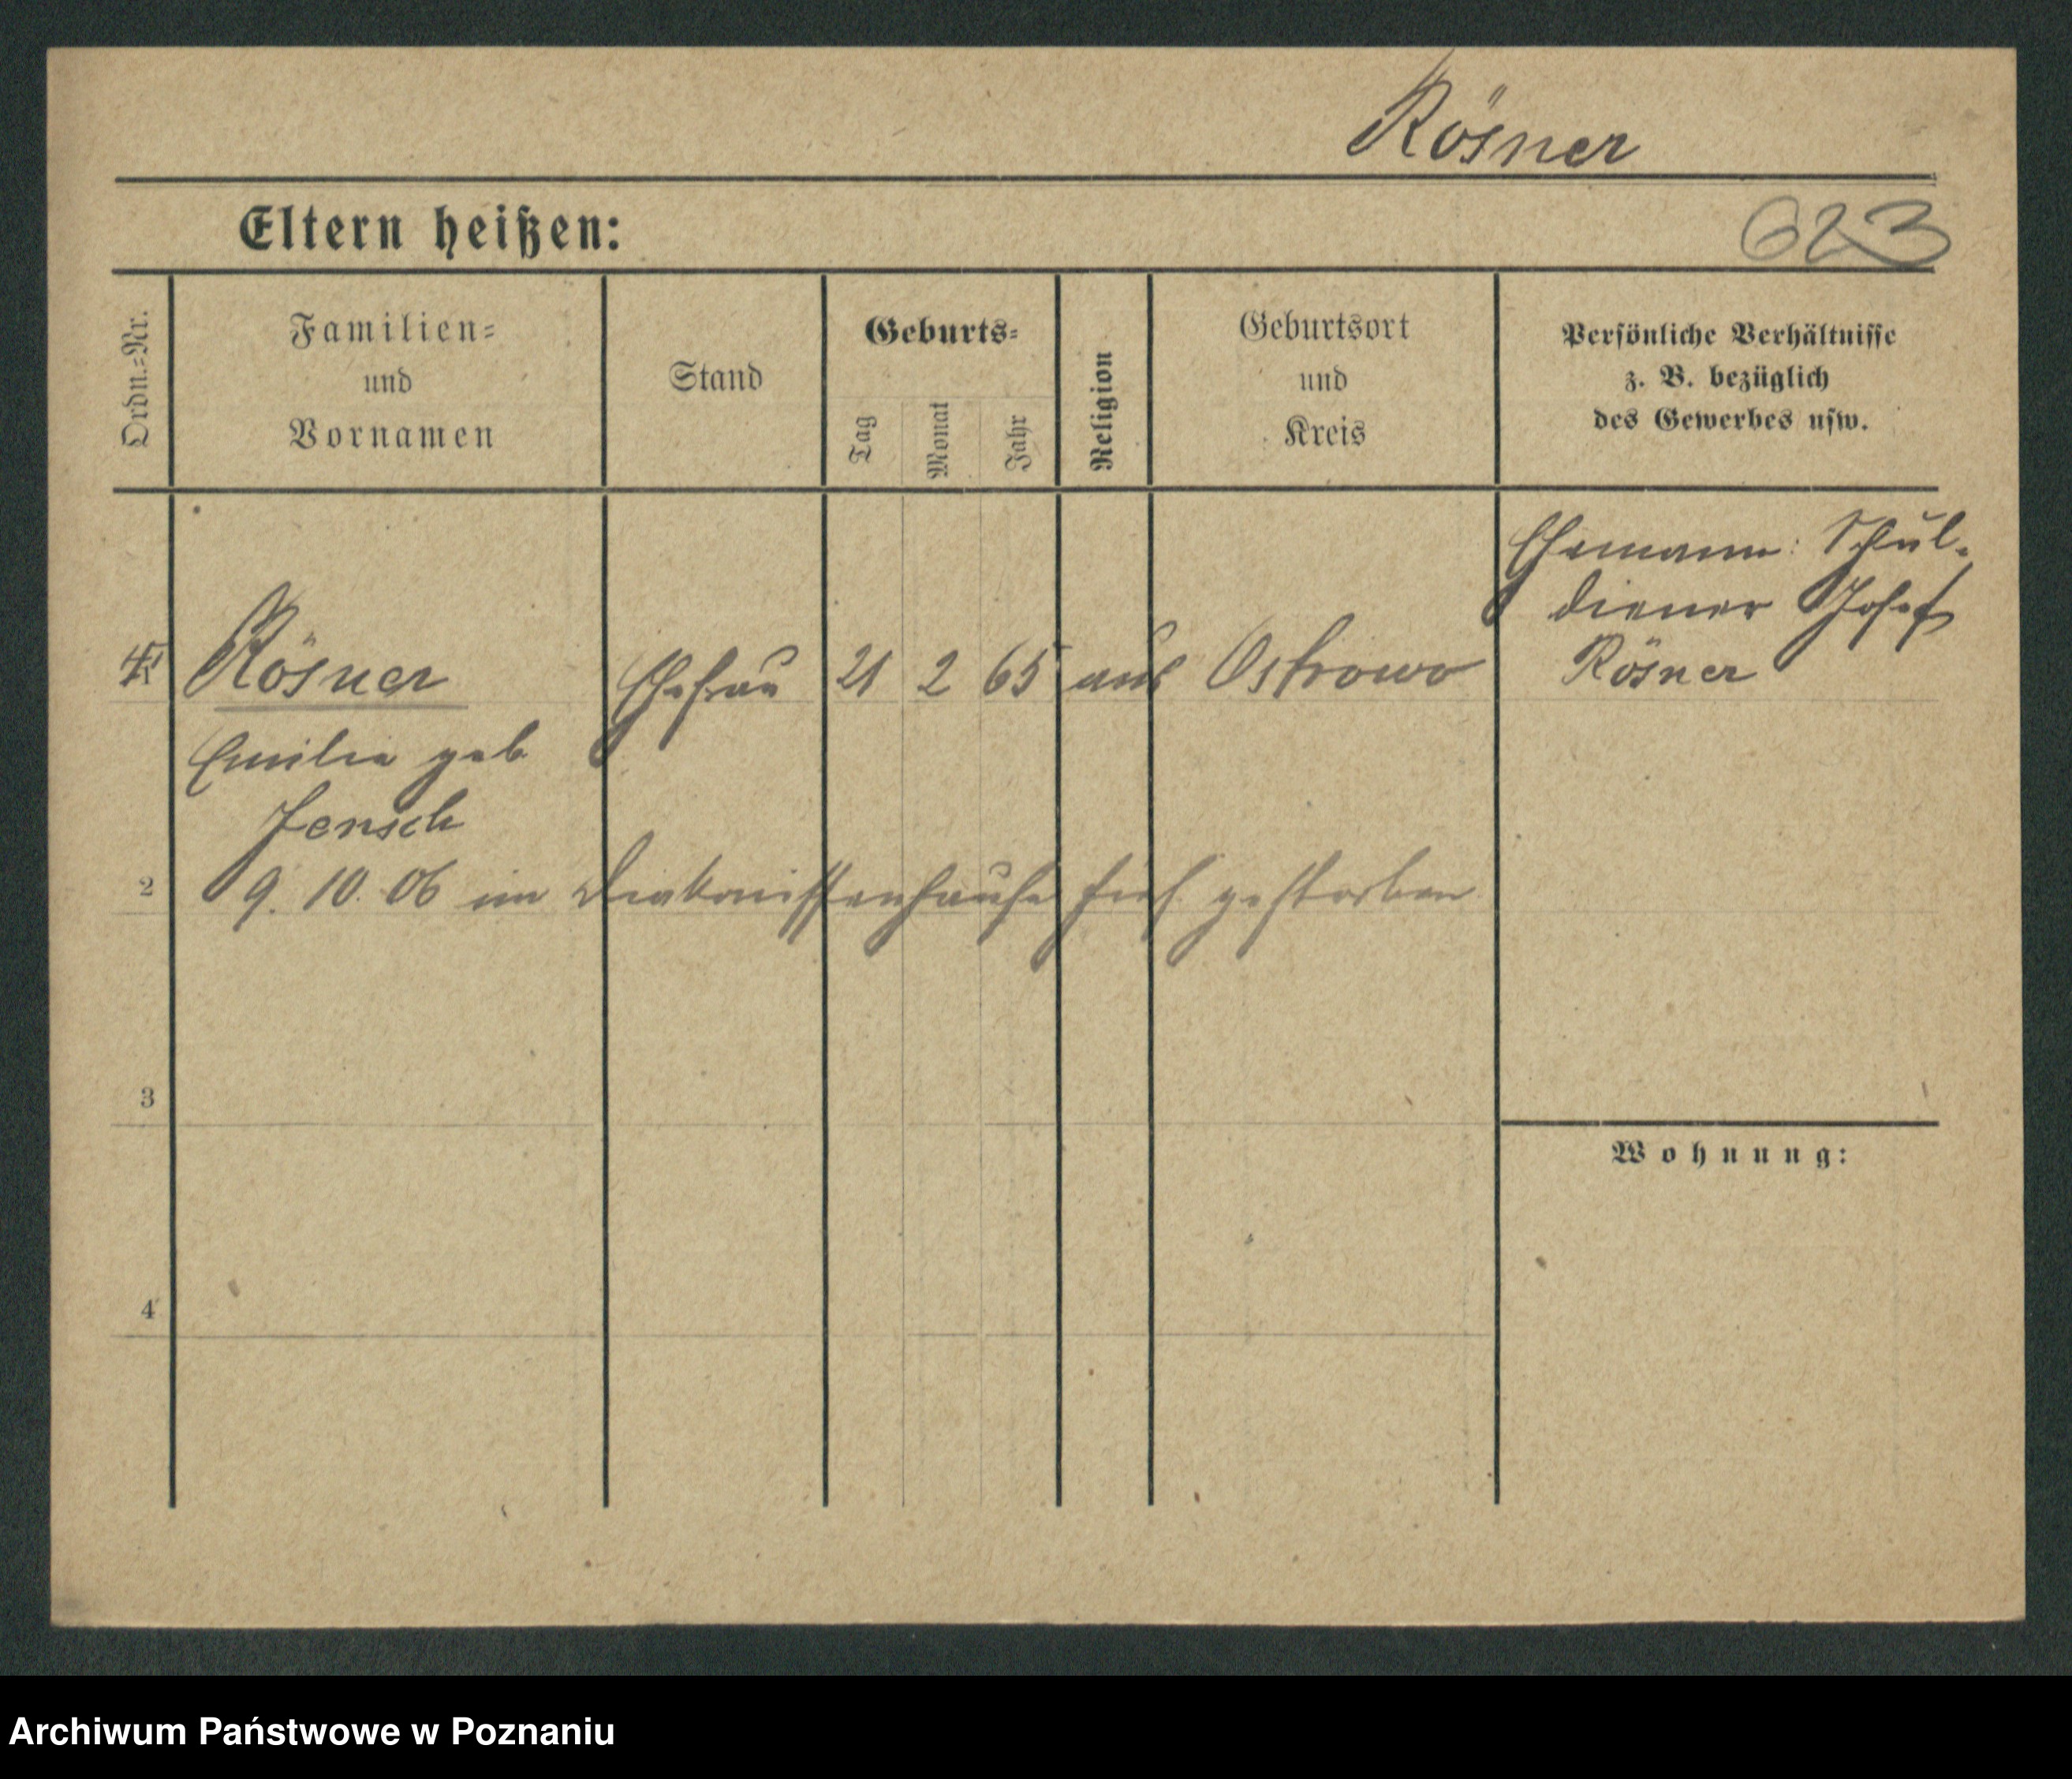 Rösner
Eltern heißen:
623
Ordn.=Nr.
Familien=
und
Vornamen
Stand
Geburts=
Tag
Monat
Jahr
Religion
Geburtsort
und
Kreis
Persönliche Verhältnisse
z. B. bezüglich
des Gewerbes usw.
Ehemann: Schul-
diener Josef
Rösner
Rösner Ehefrau 21 2 65 aus Ostrowo
Emilie geb.
Jensch
2
9. 10. 06 im Diakonissenhause hier gestorben
3
Wohnung:
4
Archiwum Państwowe w Poznaniu